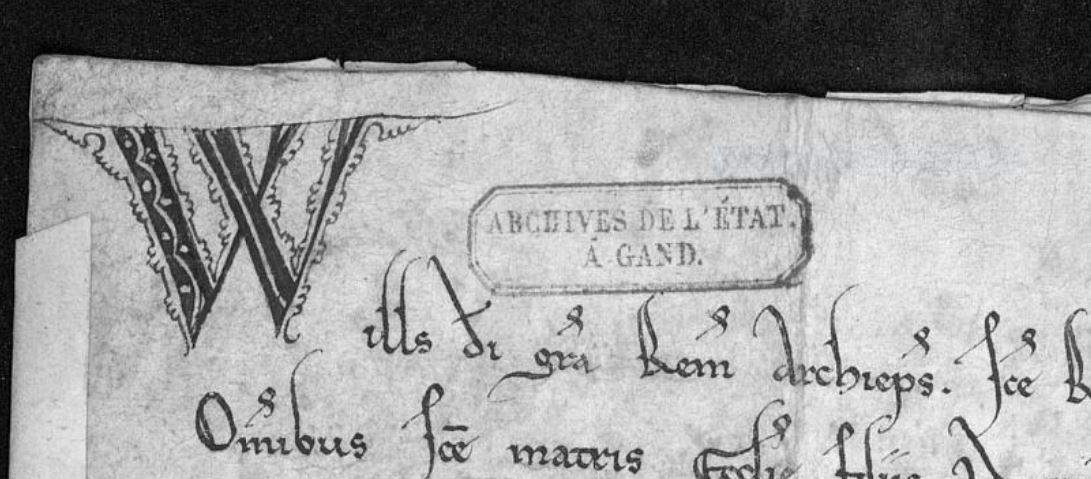 ARCHIVES DE L'ÉTAT.
À GAND.
Wills di gra Rem Archieps. Sce R
Omibus Sce matris Ecclie filiis